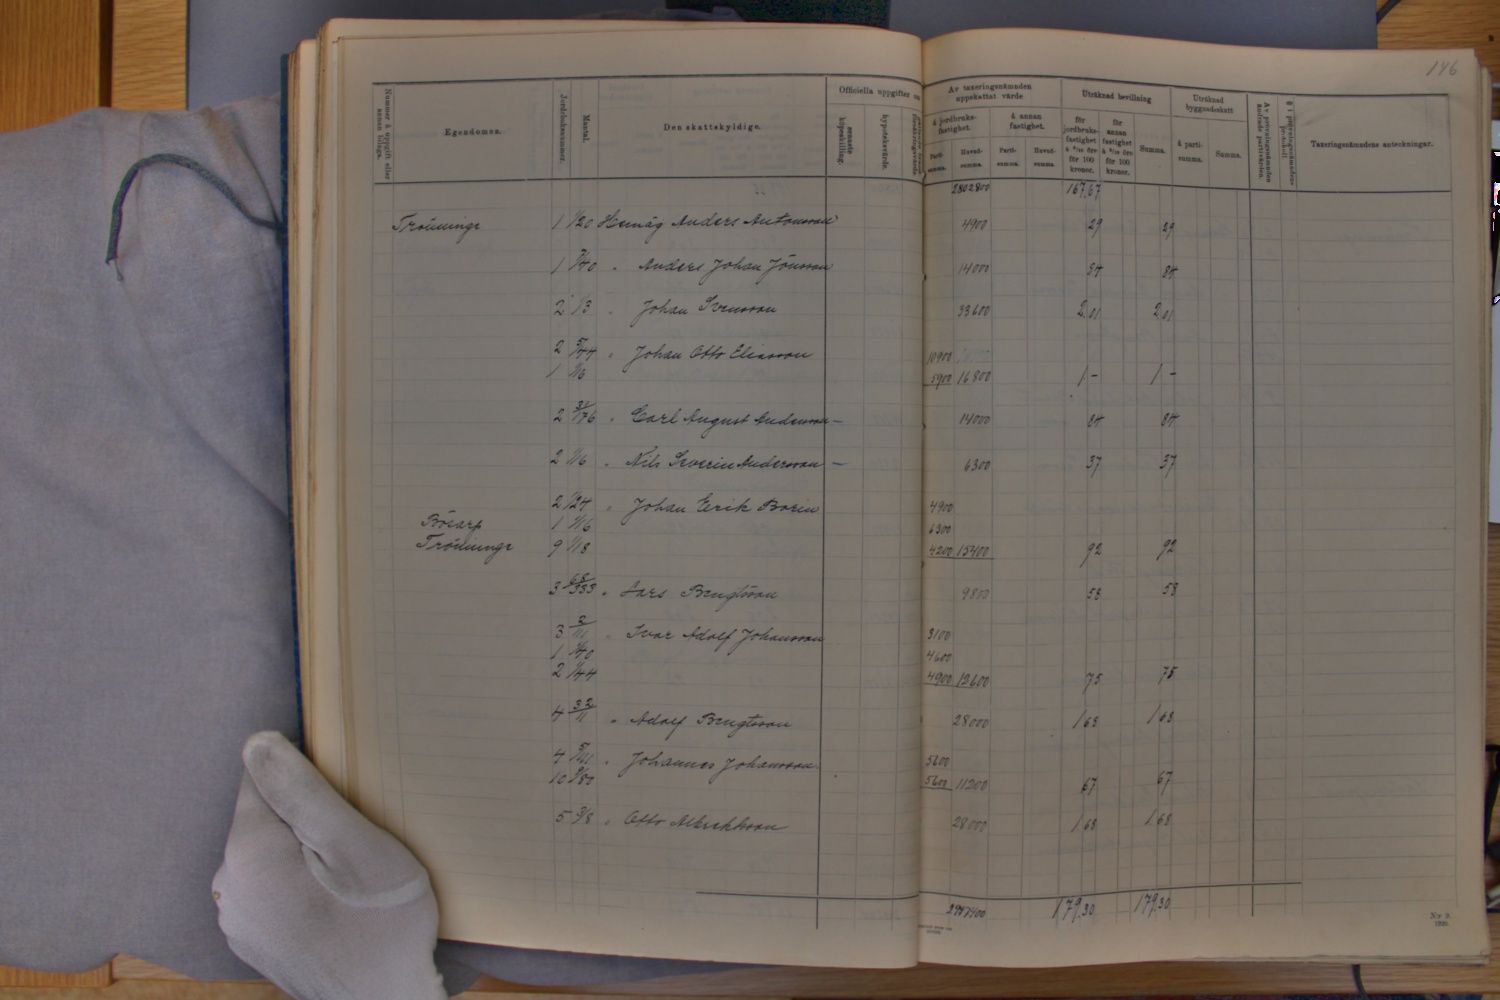 146
Nummer å uppgift eller annan bilaga.
Egendomen.
Jordeboksnummer.
Mantal.
Den skattskyldige.
Officiella uppgifter om
senaste köpeskilling.
hypoteksvärde.
Av taxeringsnämnden uppskattat värde
å jordbruksfastighet.
å annan fastighet.
Parti-summa.
Huvud-summa.
Parti-summa.
Huvud-summa.
Uträknad bevillning
för jordbruksfastighet
för 100 kronor.
för annan fastighet
för 100 kronor.
Summa.
Uträknad byggnadsskatt
å parti-summa.
Summa.
Av prövningsnämnden ändrade partivärden.
Taxeringsnämndens anteckningar.
2802800 167,67
Tröninge 1 1/20 Hemäg Anders Antonsson 4900 29 29
1 7/40 " Anders Johan Jönsson 14000 84 84
2 1/3 " Johan Svensson 33600 2 01 2 01
2 5/44 " Johan Otto Eliasson 10900
1 1/16 5900 16800 1 - 1 -
2 31/176 " Carl August Andersson - 14000 84 84
2 1/16 " Nils Severin Andersson - 6300 37 37
2 1/24 " Johan Erik Borin 4900
Bösarp 1 1/16 6300
Tröninge 9 1/18 4200 15400 92 92
3 " Lars Bengtsson 9800 58 58
3 2/11 " Ivar Adolf Johansson 3100
1 1/40 4600
2 1/44 4900 12600 75 75
4 " Adolf Bengtsson 28000 1 68 1 68
4 " Johannes Johansson 5600
10 9/80 5600 11200 67 67
5 3/8 " Otto Albrektsson 28000 1 68 1 68
179,30 179,30
Nr 9.